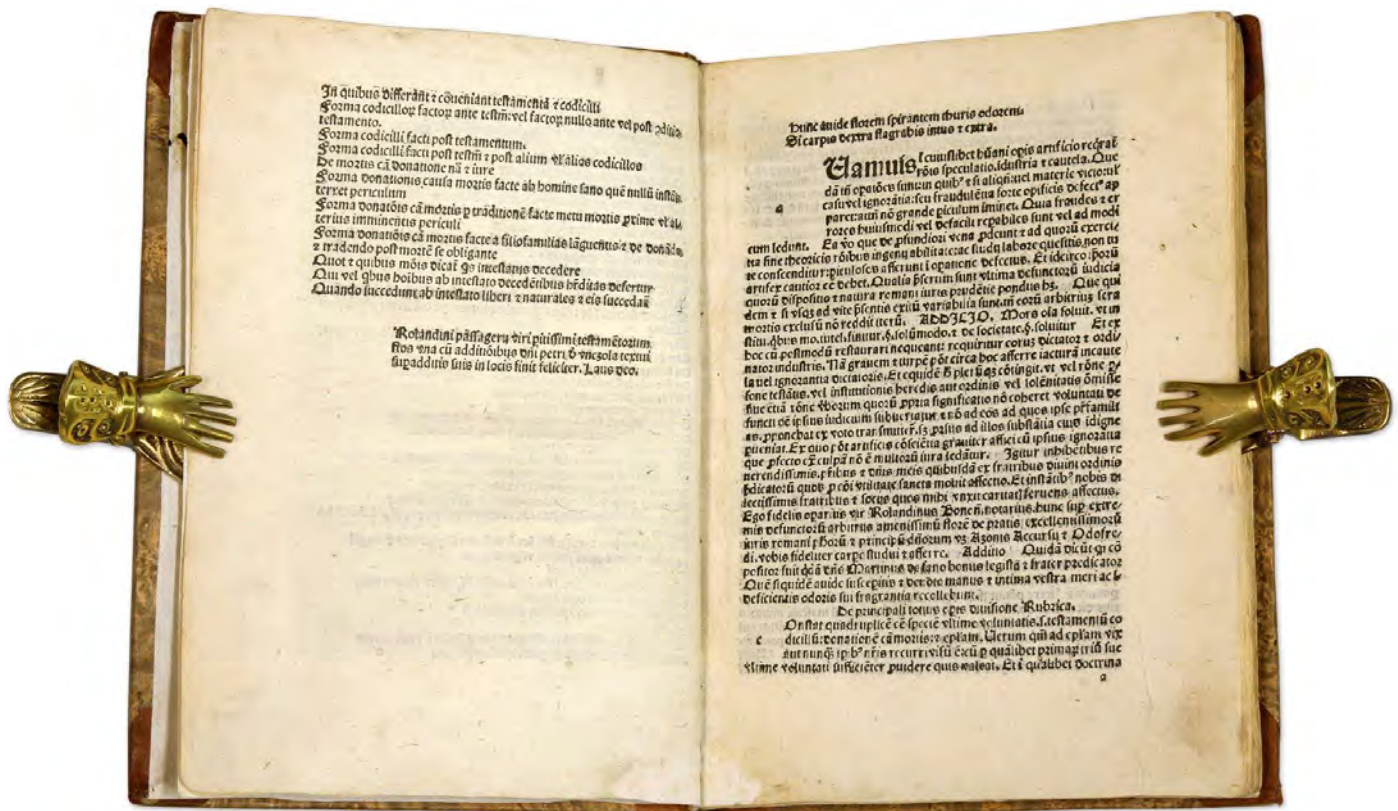 In quibus differāt ⁊ cōueniant testamenta ⁊ codicilli
Forma codicilloꝝ factoꝝ ante testm̄: vel factoꝝ nullo ante vel post
testamento.
Forma codicilli facti post testamentum.
Forma codicilli facti post testm̄ ⁊ post alium vl̓ alios codicillos
De mortis cā donatione nā ⁊ iure
Forma donationis causa mortis facte ab homine sano quē nullū
terret periculum
Forma donatōis cā mortis ꝑ traditionē facte metu mortis ꝓxime vl̓ al/
terius imminentis periculi
Forma donatōis cā mortis facte a filiofamilias lāguentis ⁊ de
⁊ tradendo post mortē se obligante
Quot ⁊ quibus mōis dicat̄ qs intestatus decedere
Qui vel qbus hoibus ab intestato decedētibus hr̄ditas defertur
Quando succedunt ab intestato liberi ⁊ naturales ⁊ eis succedant
Rolandini passagerij viri testamētorum
flos vna cū additiōibus dn̄i petri d̄ vnczola textui
suis in locis finit feliciter. Laus deo.
Hunc auide florem spirantem thuris odorem
Si carpis dextra flagrabis intus ⁊ extra.
Uamuis cuiuslibet hūani opis artificio
rōis speculatio, idustria ⁊ cautela. Que
dā tn̄ opatōes sunt in quibꝰ ⁊ si aliqn̄ vel materie vicio vl̓
casu vel ignorātia: seu fraudulētia forte opificis defectꝰ ap
a
paret: attn̄ nō grande piculum iminet. Quia fraudes ⁊ er
rores huiusmodi vel defacili repabiles sunt vel ad modi
cum ledunt. Ea vo que de ꝓfundiori vena ꝓdeunt ⁊ ad quorū exerci/
tia sine theoricis rōibus ingenij abilitate: ac studij labore quesitis, non tu
te conscenditur: piculosos afferunt i opatione defectus. Et idcirco
artifex cautior eē debet. Qualia pn̄serum sunt vltima defunctorū iudicia
quorū dispositio ⁊ natura romani iuris prudētie pondus hꝫ. Que qui
dem ⁊ si vsqꝫ ad vite pn̄sentis exitū variabilia sunt, tn̄ eorū arbitriū sera
mortis exclusū nō reddit iterū. ADDITIO. Mors oīa soluit. vt in
stitu. qbus mo. tutel. finitur. ⁊ de societate. soluitur Et ex
hoc cū postmodū restaurari nequeant: requiritur eorus dictator ⁊ ordi
nator industris. Nā grauem ⁊ turpē pōt circa hoc afferre iacturā incaute
la vel ignorantia dictatoris. Et equidē qꝫ cōtingit. vt vel rōne ꝑ/
sone testātis, vel institutionis heredis aut ordinis vel solēnitatis ōmisse
siue etiā rōne vborum quorū ꝓpria significatio nō coheret voluntati de
functi oē ipsius iudicium subuertatur ⁊ nō ad eos ad quos ipse
ꝓponebat ex voto transmittet. sꝫ ad illos substātia eius idigne
pueniat. Ex quo pōt artificis cōsciētia grauiter affici cū ipsius ignorātia
que ꝓfecto culpā nō ē multorū iura ledātur. Igitur inhibētibus re
uerendissimis, pribus ⁊ dn̄is meis quibusdā ex fratribus diuini ordinis
pdicatorū quos ꝓ cōi vtilitate sancta mouit affectio. Et instātibꝰ nobis di
lectissimis fratribus ⁊ socijs quos mihi vnxit caritatis feruens affectus.
Ego fidelis oparius vir Rolandinus Bonoñ. notarius. hunc sup extre
mis defunctorū arbitrijs amenissimū florē de pratis, excellentissimorū
iuris romani ⁊ principū dn̄orum vꝫ Azonis Accursij ⁊ Odofre/
di. vobis fideliter carpe studui ⁊ afferre. Additio Quidā dicūt qꝫ cō
positor fuit qdā dn̄s Martinus de fano bonus legista ⁊ frater predicator
Quē siquidē auide suscepitis ⁊ manus ⁊ intima vestra meri ac
deficientis odoris sui fragrantia
De principali totius opis diuisione Rubrica.
Onstat quadruplicē eē speciē vltime voluntatis. s. testamentū co
c
dicillū: donationē cā mortis: ⁊ epl̄am. Uerum qm̄ ad epl̄am vix
aut nunqꝫ ipꝰ nr̄is recurri visū ē cū ꝑ quālibet primaꝝ triū sue
vltime voluntati sufficiēter ꝓuidere quis valeat. Et i qualibet doctrina
a